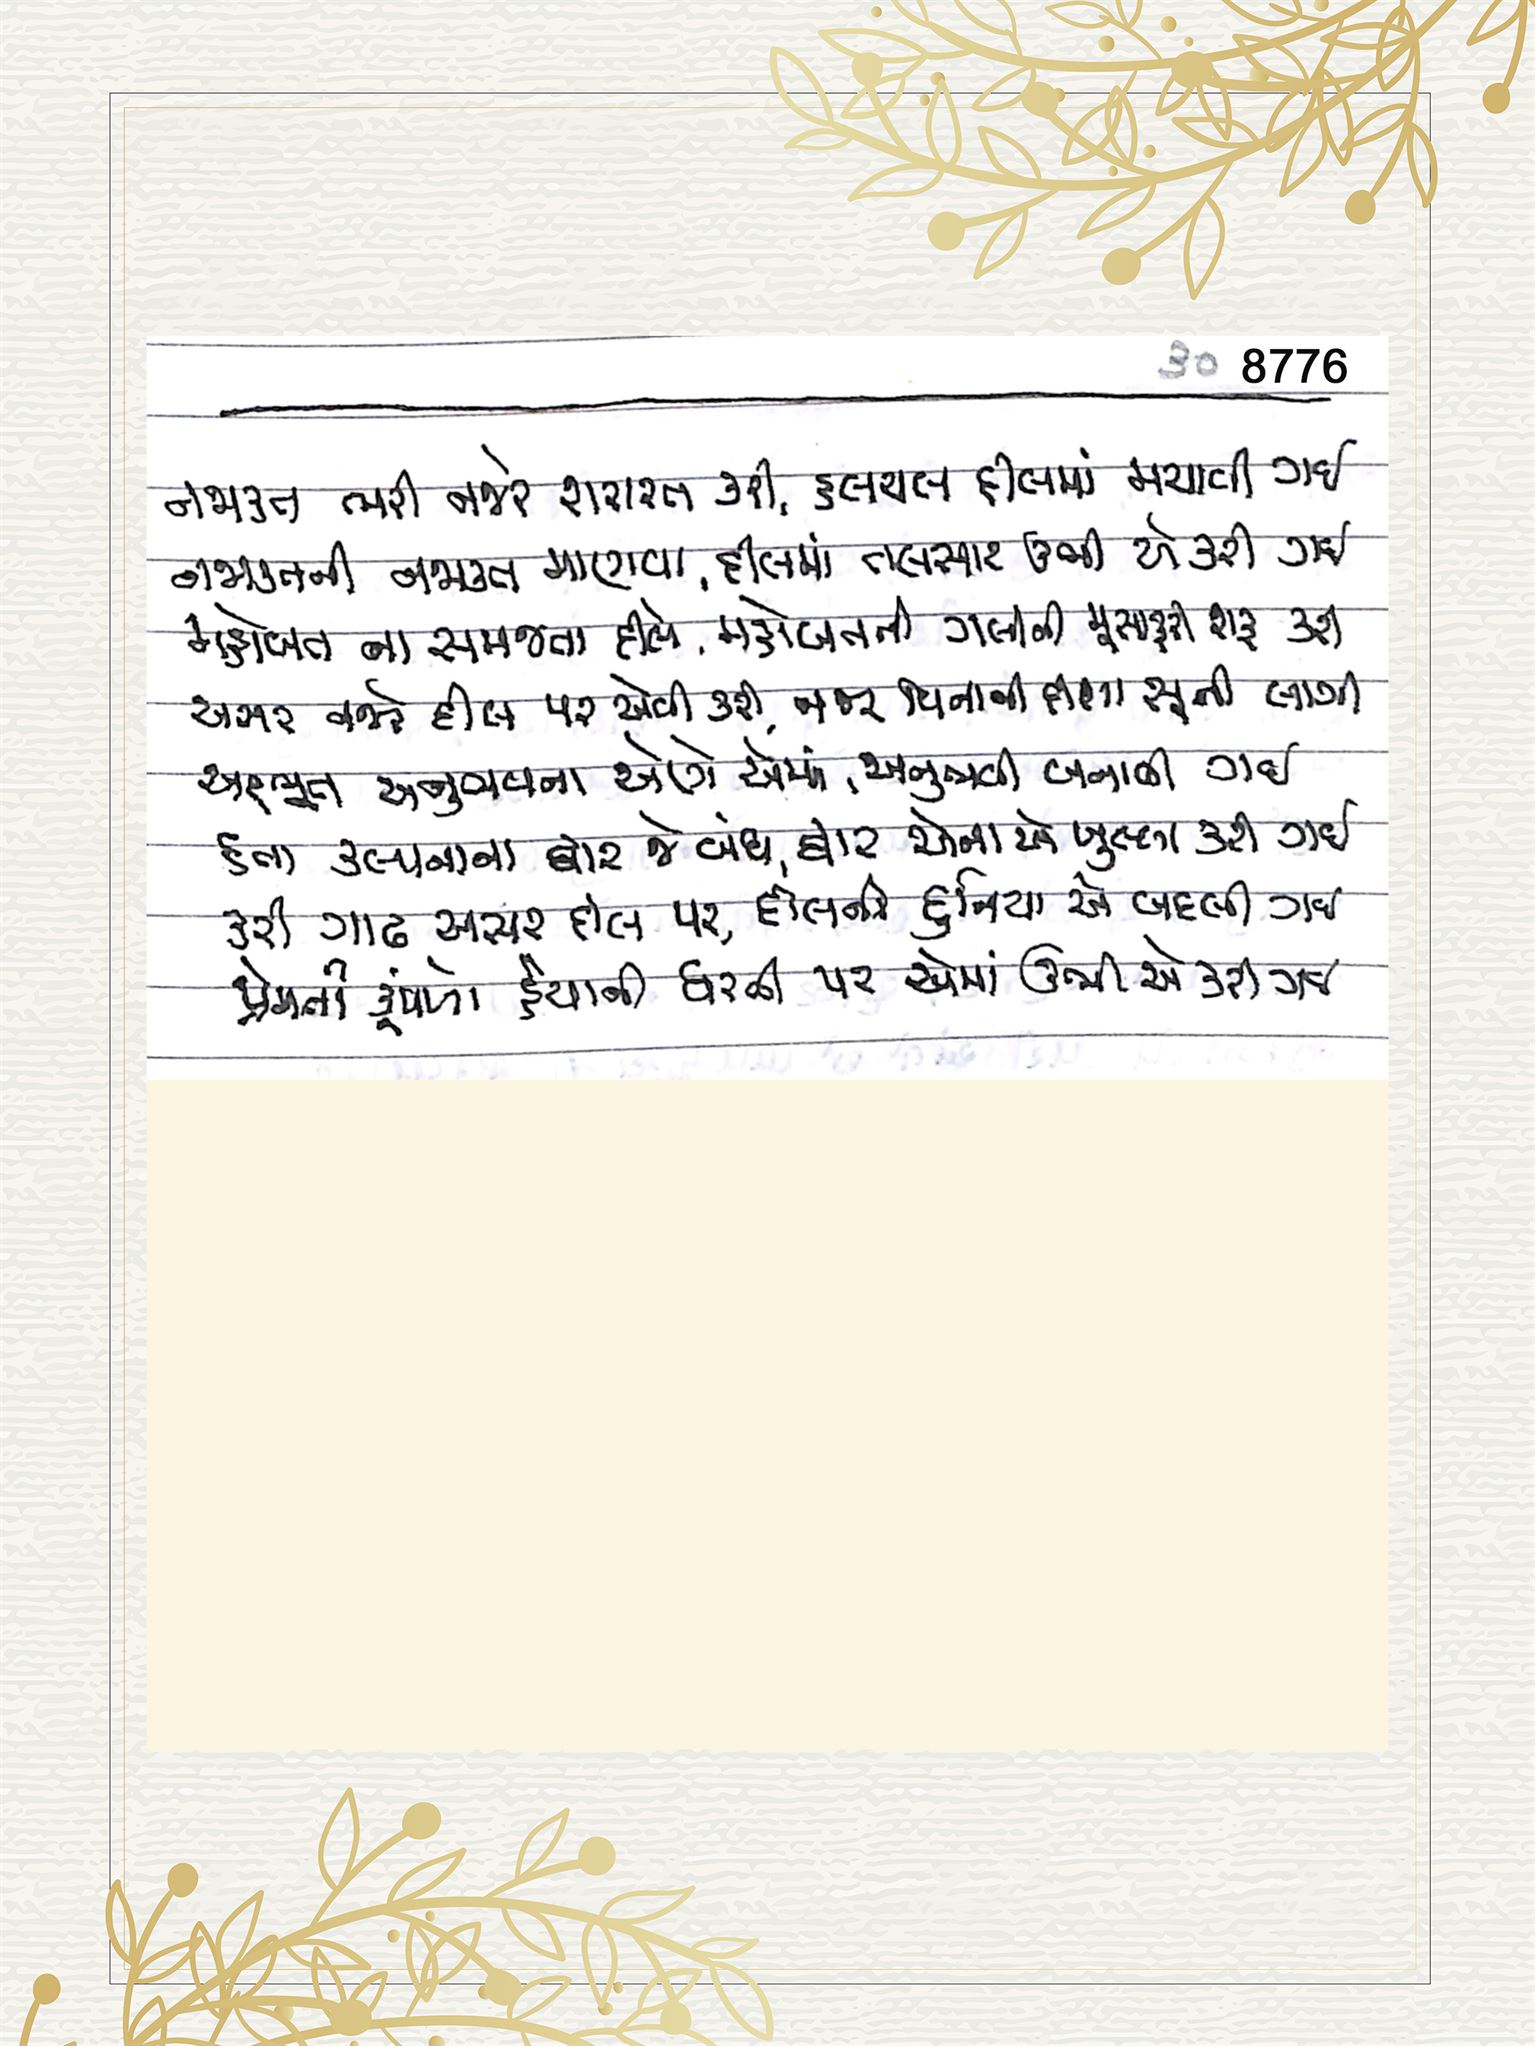 ૩૦ 8776
નજાકત ભરી નજરે શરારત કરી, હલચલ દીલમાં મચાવી ગઈ
નજાકતની નજાકત માણવા, દીલમાં તલસાટ ઉભી એ કરી ગઈ
મહોબત ના સમજતા દીલે, મહોબતની ગલીની મુસાફરી શરૂ કરી
અસર નજરે દીલ પર એવી કરી, નજર વિનાની ક્ષણો સૂની લાગી
અદ્ભૂત અનુભવના એણે એમાં, અનુભવી બનાવી ગઈ
હતા કલ્પનાના દ્વાર જે બંધ, દ્વાર એના એ ખુલ્લા કરી ગઈ
કરી ગાઢ અસર દીલ પર, દીલની દુનિયા એ બદલી ગઈ
પ્રેમની કૂંપળો હૈયાની ધરતી પર એમાં ઉભી એ કરી ગઈ